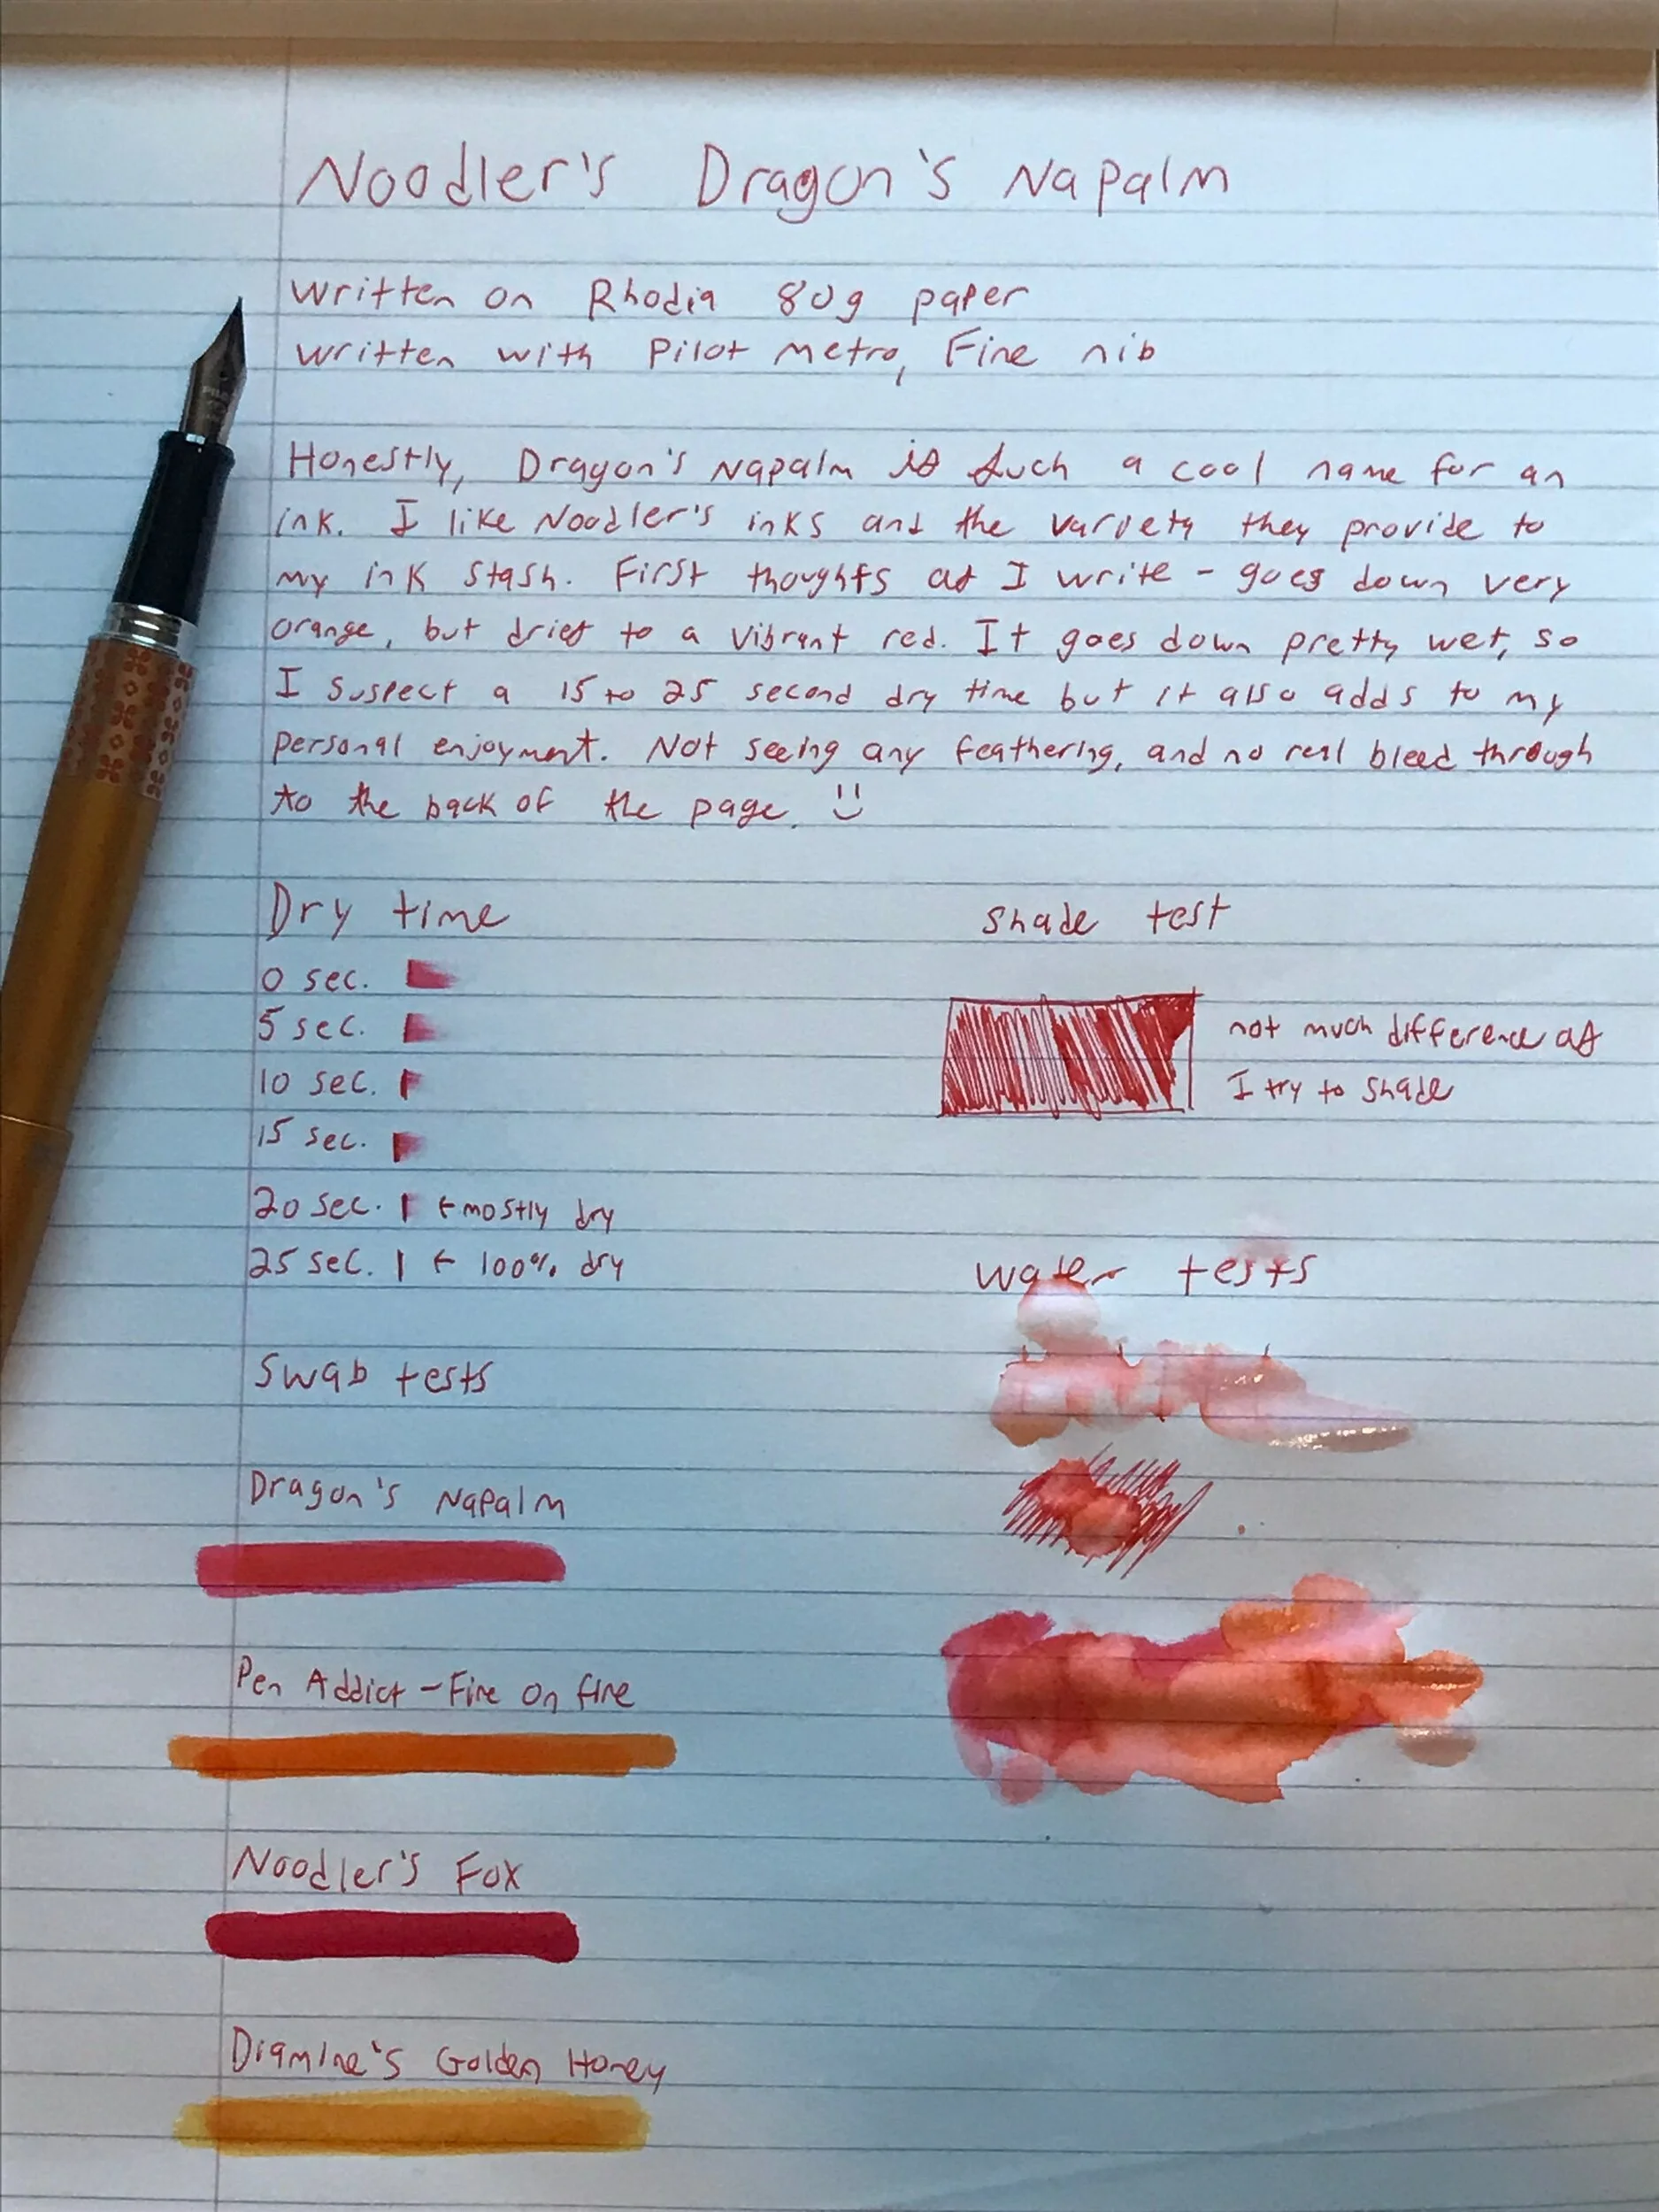 Noodler's Dragon's Napalm
Written on Rhodia 80g paper
Written with Pilot Metro, Fine nib
Honestly, Dragon's Napalm is such a cool name for an
ink. I like Noodler's inks and the variety they provide to
my ink stash. First thoughts as I write - goes down very
orange, but dries to a vibrant red. It goes down pretty wet, so
I suspect a 15 to 25 second dry time but it also adds to my
personal enjoyment. Not seeing any feathering, and no real bleed through
to the back of the page. :)
Dry time
0 sec.
5 sec.
10 sec.
15 sec.
20 sec. ← mostly dry
25 sec. ← 100% dry
Shade test
not much difference as
I try to shade
Water tests
Swab tests
Dragon's Napalm
Pen Addict - Fire on fire
Noodler's Fox
Diamine's Golden Honey